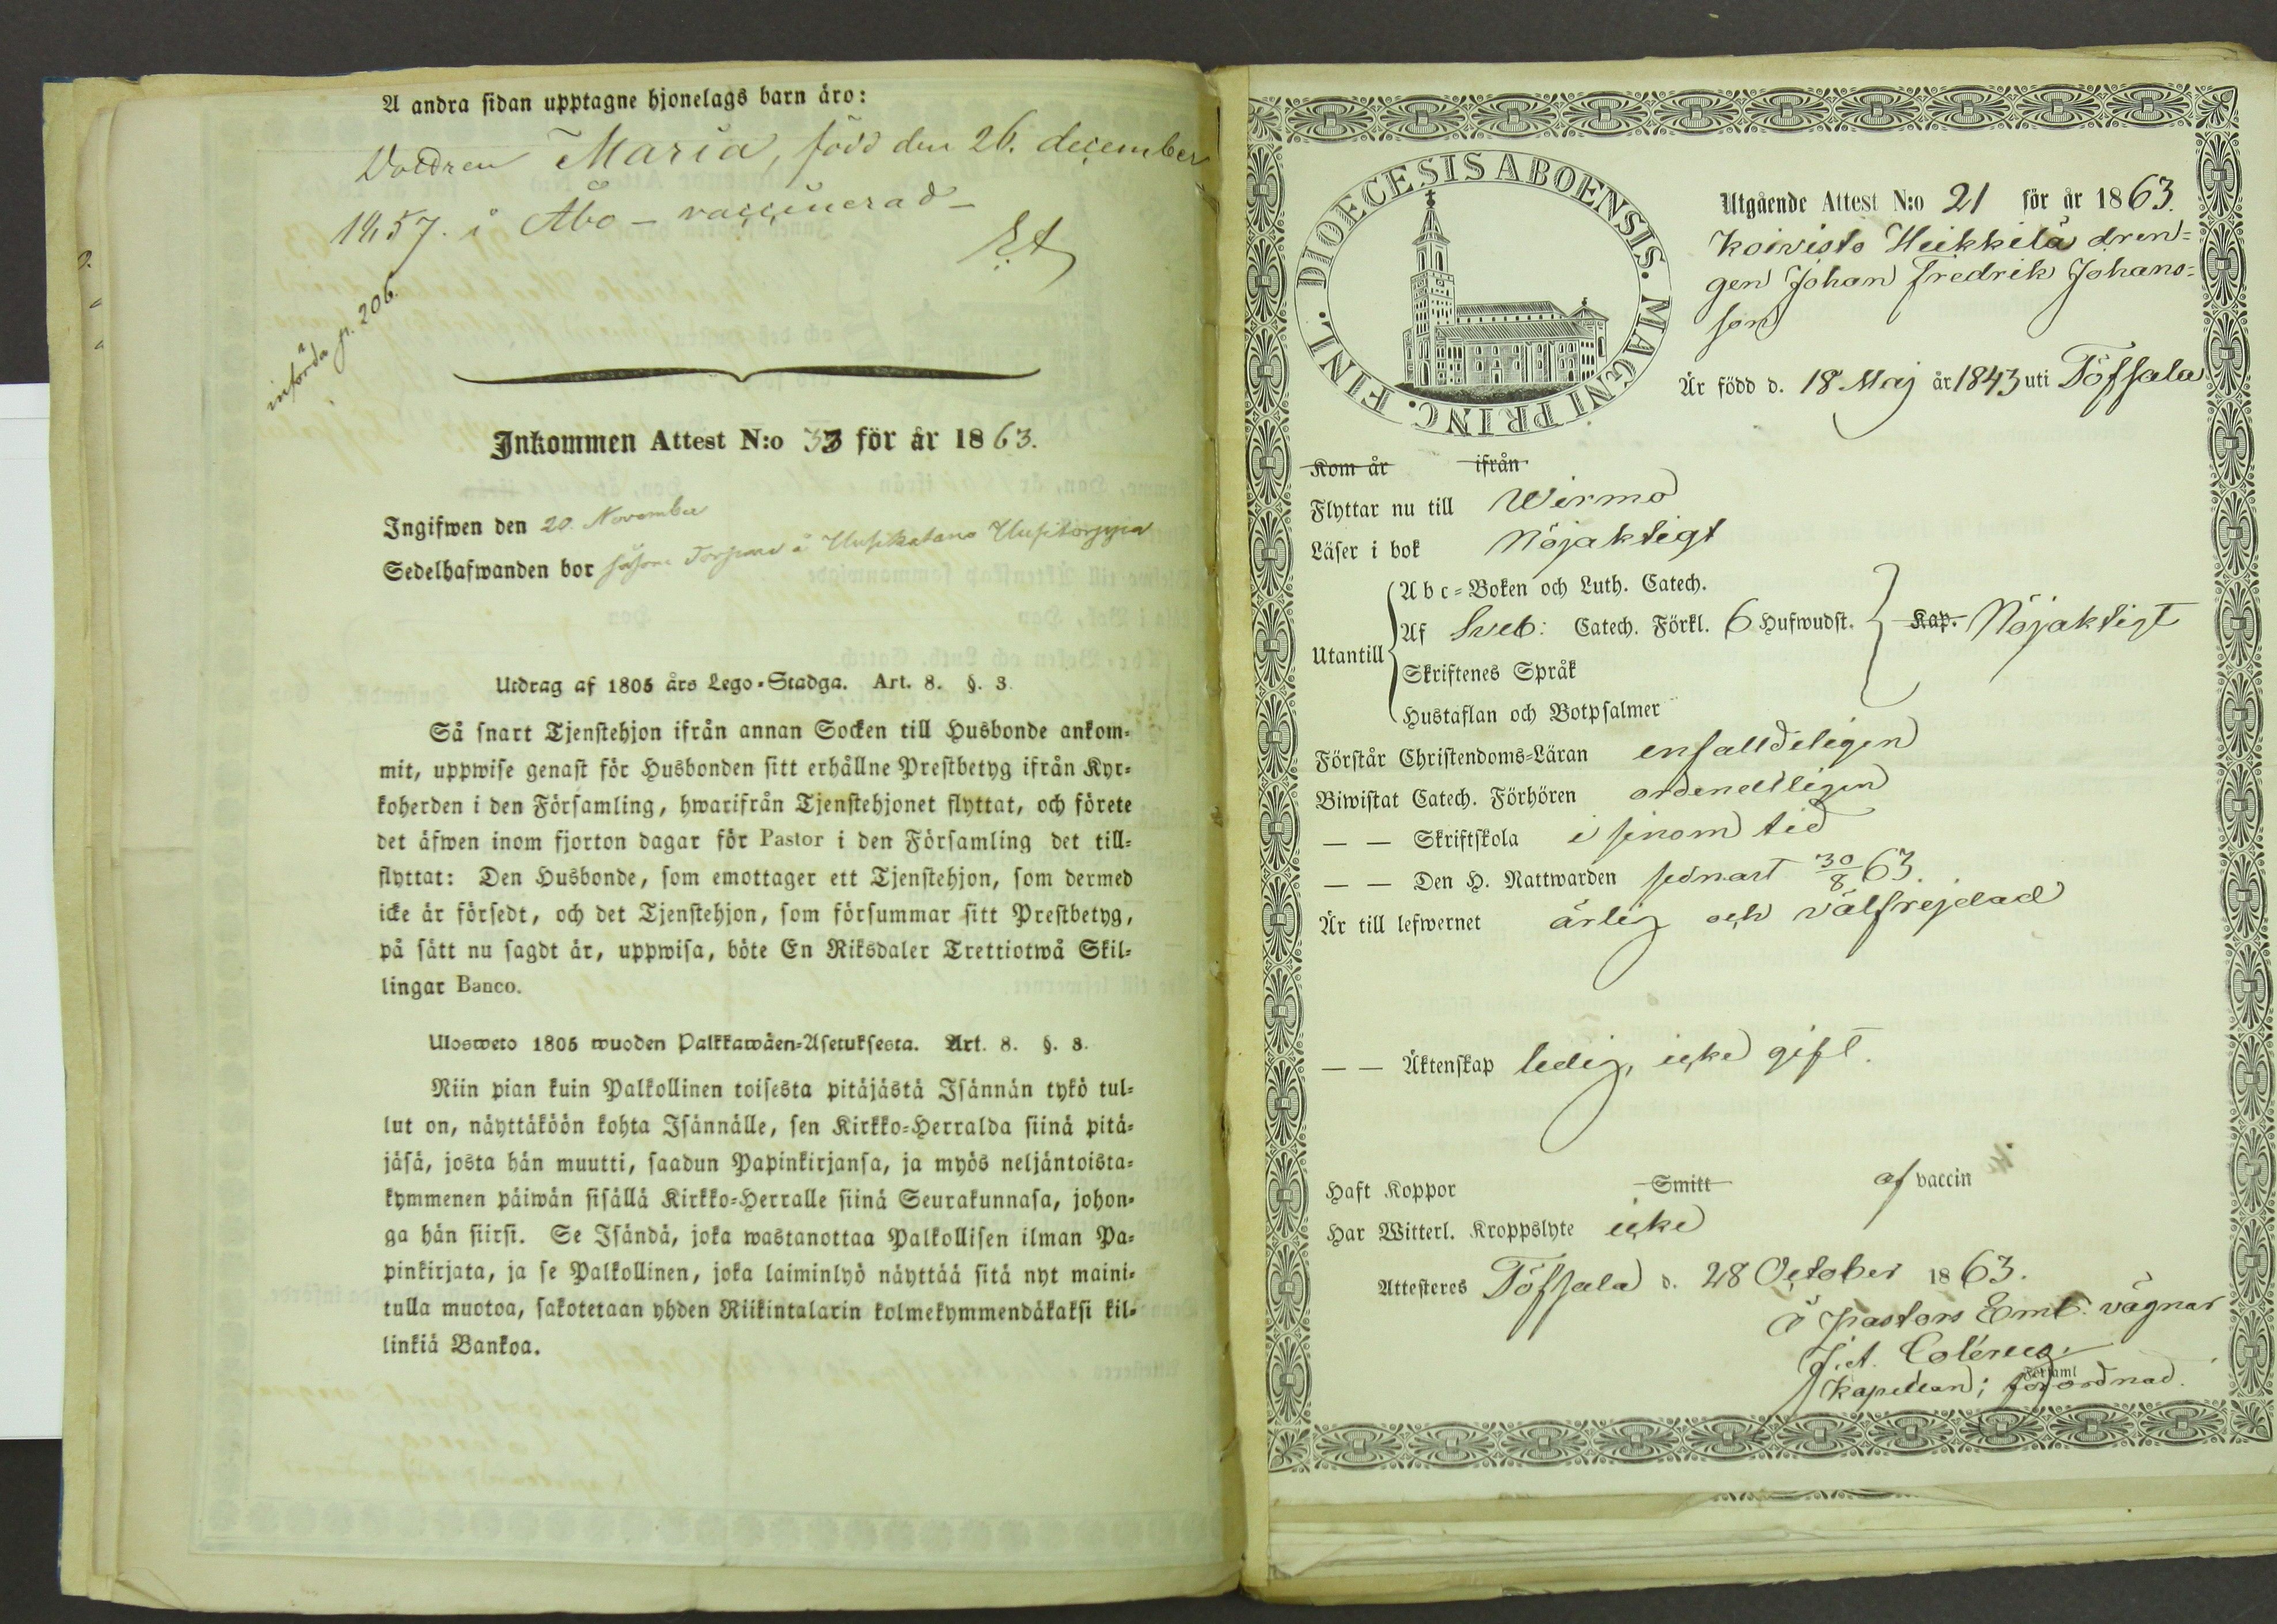 A andra sidan upptagne hjonelags barn äro:
Maria, född den 26. december
1857. i Åbo – vaccinerad –
införda p. 206.
Inkommen Attest N:o 33 för år 1863.
Ingifwen den 20. November
Sedelhafwanden bor såsom Torpare å
Utdrag af 1805 års Lego-Stadga. Art. 8. §. 3.
Så snart Tjenstehjon ifrån annan Socken till Husbonde ankom-
mit, uppwise genast för Husbonden sitt erhållne Prestbetyg ifrån Kyr-
koherden i den Församling, hwarifrån Tjenstehjonet flyttat, och förete
det äfwen inom fjorton dagar för Pastor i den Församling det till-
flyttat: Den Husbonde, som emottager ett Tjenstehjon, som dermed
icke är försedt, och det Tjenstehjon, som försummar sitt Prestbetyg,
på sätt nu sagdt är, uppwisa, böte En Riksdaler Trettiotwå Skil-
lingar Banco.
Ulosweto 1805 wuoden Palkkawäen-Asetuksesta. Art. 8. §. 3.
Niin pian kuin Palkollinen toisesta pitäjästä Isännän tykö tul-
lut on, näyttäköön kohta Isännälle, sen Kirkko-Herralda siinä pitä-
jäsä, josta hän muutti, saadun Papinkirjansa, ja myös neljäntoista-
kymmenen päiwän sisällä Kirkko-Herralle siinä Seurakunnasa, johon-
ga hän siirsi. Se Isändä, joka wastanottaa Palkollisen ilman Pa-
pinkirjata, ja se Palkollinen, joka laiminlyö näyttää sitä nyt maini-
tulla muotoa, sakotetaan yhden Riikintalarin kolmekymmendäkaksi kil-
linkiä Bankoa.
DIOECESIS ABOENSIS. MAGNI PRINC. FINL.
Utgående Attest N:o 21 för år 1863.
Koivisto Heikkilä dren-
gen Johan Fredrik Johans-
son
Är född d. 18 Maj år 1843 uti Töfsala
Kom år ifrån
Flyttar nu till Wirmo
Läser i bok Nöjaktigt
Utantill
Abc-Boken och Luth. Catech.
Af Sveb: Catech. Förkl. 6 Hufwudst. Kap. Nöjaktigt
Skriftenes Språk
Hustaflan och Botpsalmer
Förstår Christendoms-Läran enfalldeligen
Biwistat Catech. Förhören ordentligen
— — Skriftskola i sinom tid
— — Den H. Nattwarden sednast 30/8 63.
Är till lefwernet ärlig och välfrejdad
— — Äktenskap ledig, icke gift.
Haft Koppor Smitt af vaccin
Har Witterl. Kroppslyte icke
Attesteres Töfsala d. 28 October 1863.
å Pastors Emb. vägnar
Kapellan; förordnad.